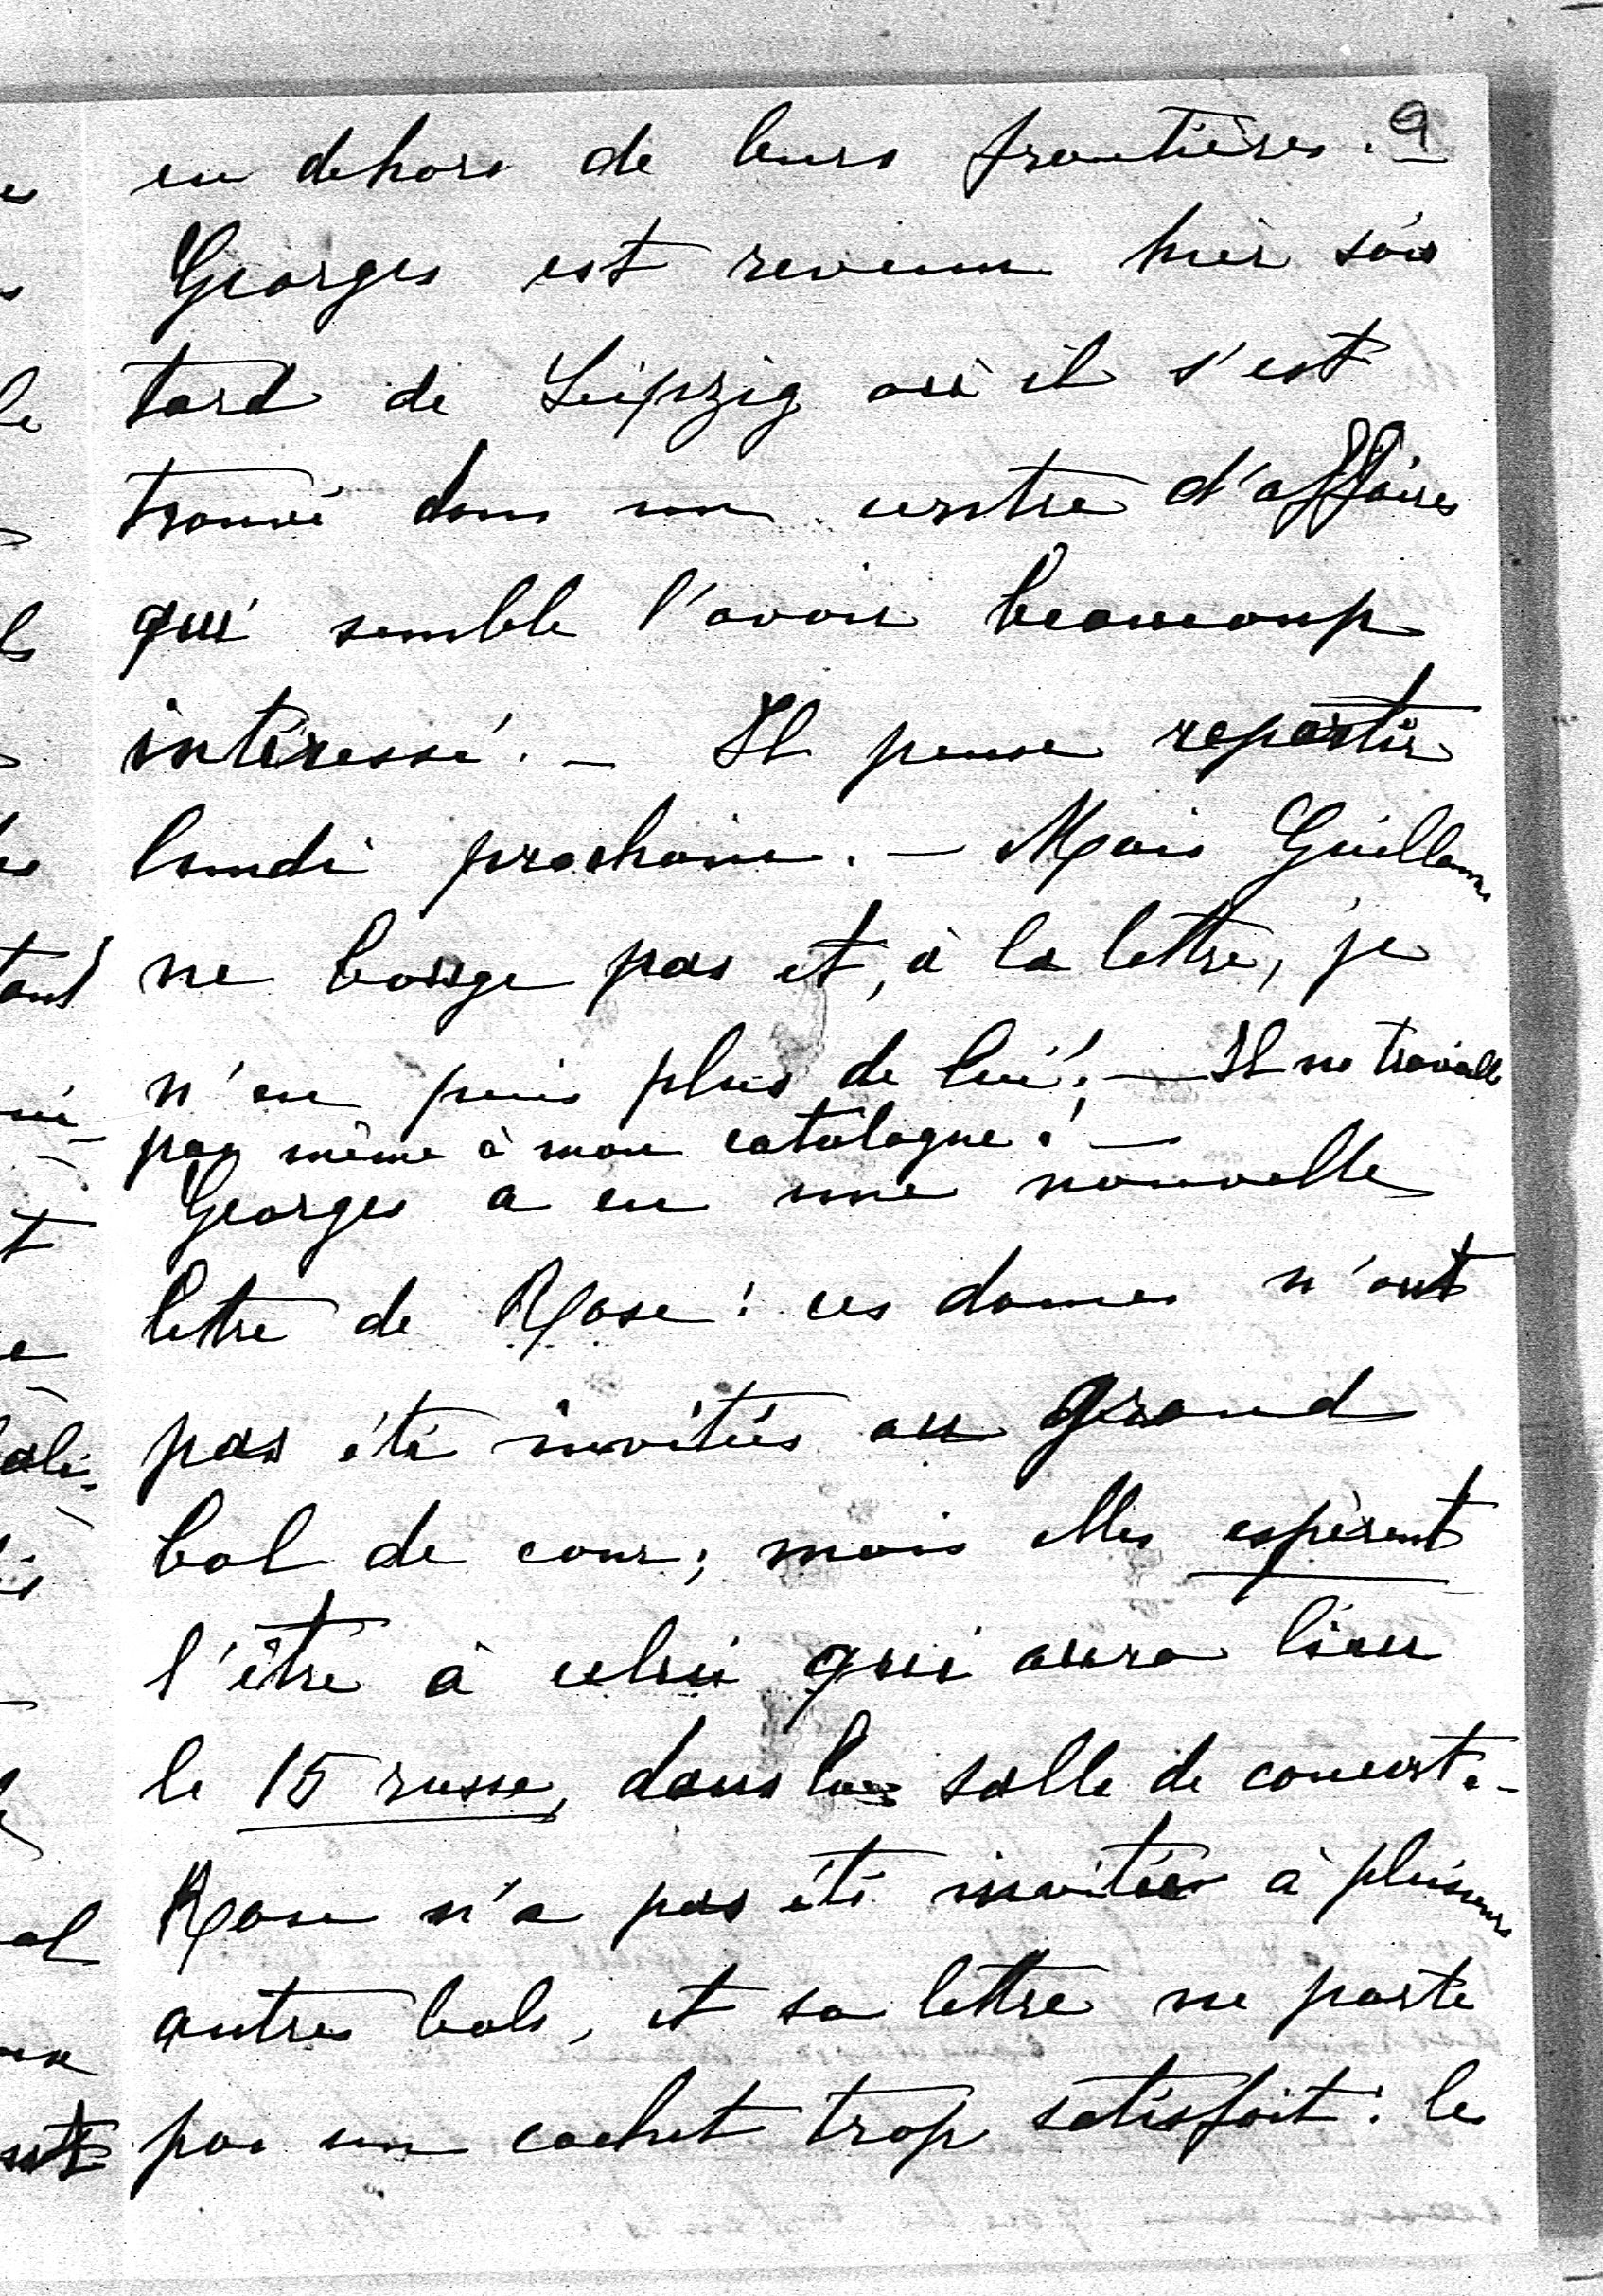 9
en dehors de leurs frontières.
Georges est revenu hier soir
tard de Leipzig où il s'est
trouvé dans un centre d'affaires
qui semble l'avoir beaucoup
intéressé. — Il pense repartir
lundi prochain. — Mais Guillaume
ne bouge pas et, à la lettre, je
n'en puis plus de lui! — Il ne travaille
pas même à mon catalogue! —
Georges a eu une nouvelle
lettre de Rose : ces dames n'ont
pas été invitées au grand
bal de cour; mais elles espèrent
l'être à celui qui aura lieu
le 15 russe, dans la salle de concert. -
Rose n'a pas été invitée à plusieurs
autres bals, et sa lettre ne porte
pas un cachet trop satisfait : le